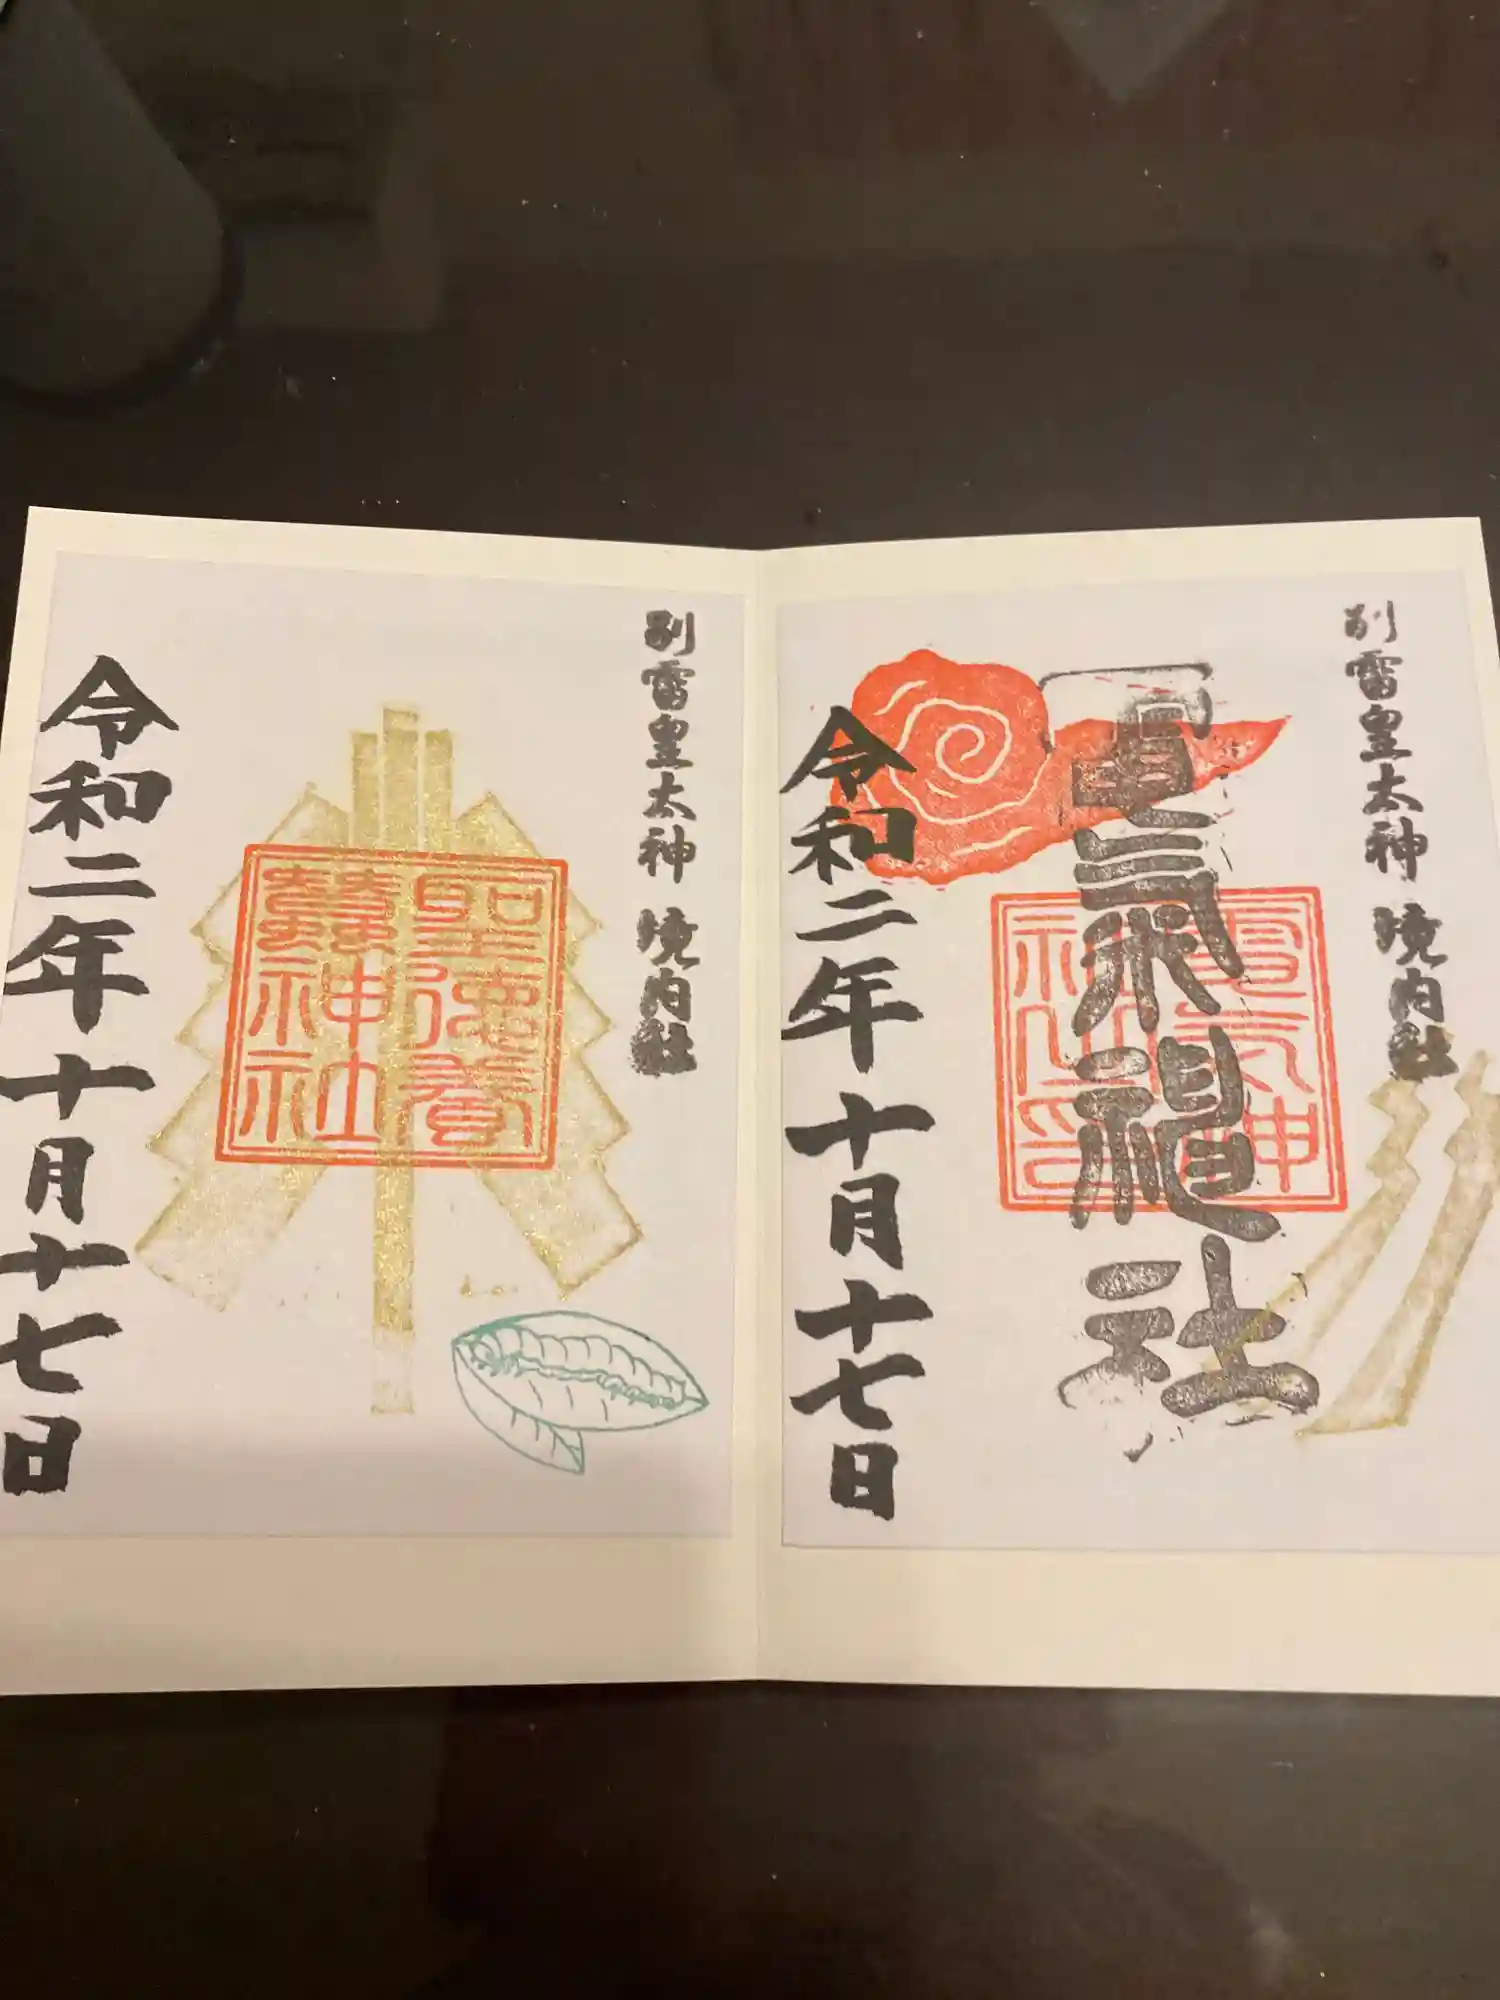 別雷皇太神 境内社
電氣神社
電気神
社之印
令和二年十月十七日
別雷皇太神 境内社
聖徳養
蠶神社
令和二年十月十七日